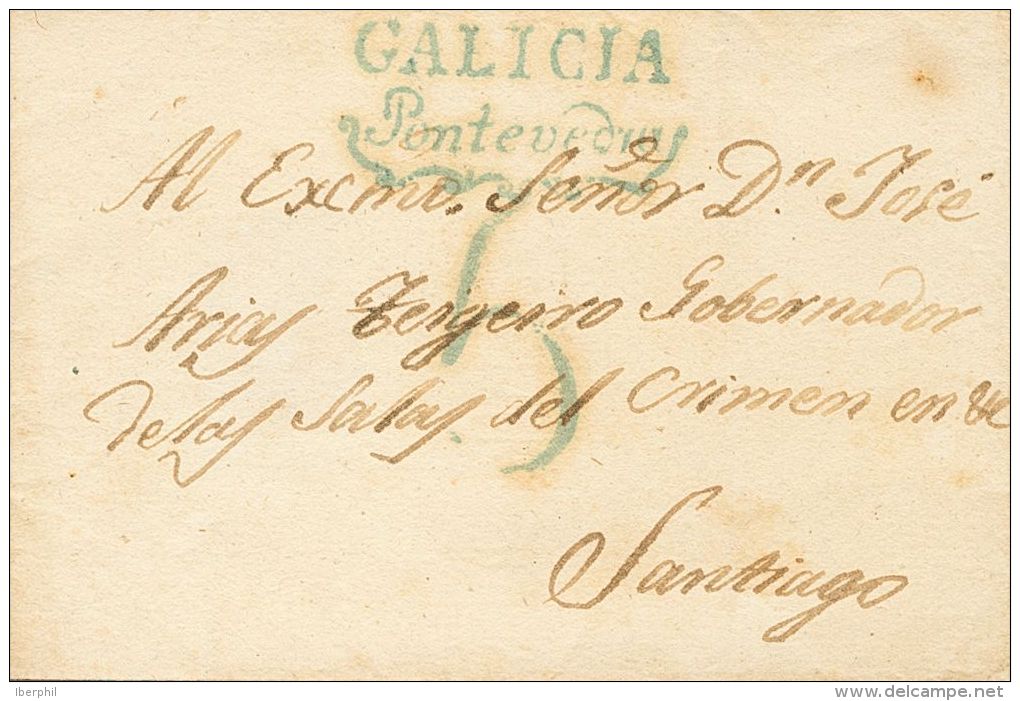 GALICIA
Pontevedra
Al Excmo. Señor Dn. José
5
Arias Teigeiro Gobernador
delas Salas del Crimen en &c
Santiago
Iberphil
www.delcampe.net